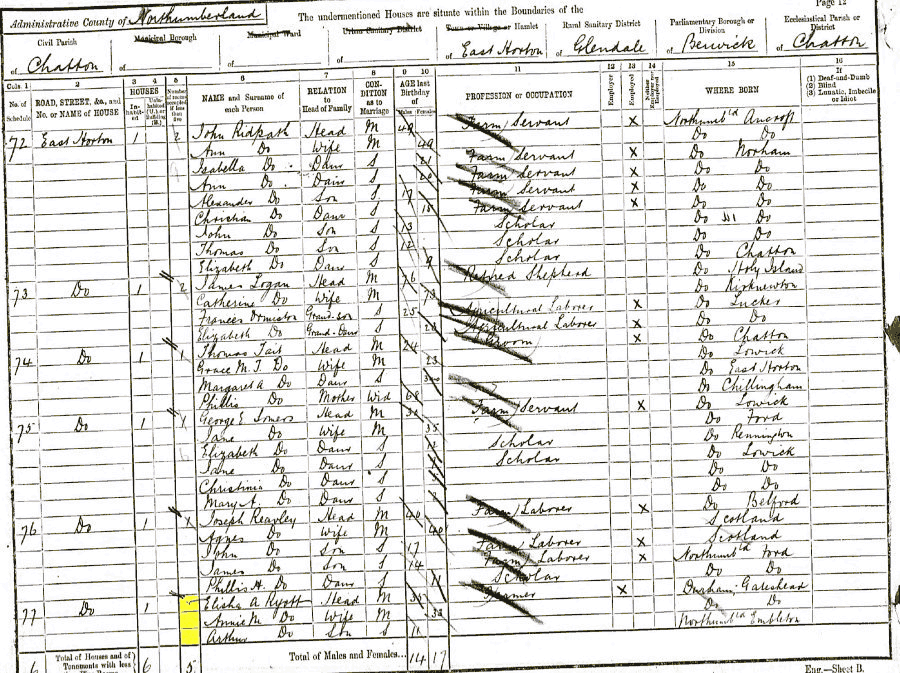 Page 12
Administrative County of Northumberland The undermentioned Houses are situate within the Boundaries of the
Civil Parish Municipal Borough Municipal Ward Urban Sanitary District Town or Village or Hamlet Rural Sanitary District Parliamentary Borough or Division Ecclesiastical Parish or District
of Chatton of of of of East Horton of Glendale of Berwick of Chatton
Cols. 1 2 3 4 5 6 7 8 9 10 11 12 13 14 15 16
No. of Schedule ROAD, STREET, &c., and No. or NAME of HOUSE HOUSES In-habited Number of rooms occupied if less than five NAME and Surname of each Person RELATION to Head of Family CON-DITION as to Marriage AGE last Birthday of Males Females PROFESSION or OCCUPATION Employer Employed WHERE BORN If (1) Deaf-and-Dumb (2) Blind (3) Lunatic, Imbecile or Idiot
72 East Horton 1 2 John Ridpath Head M 49 Farm Servant X Northumb'ld Ancroft
Ann Do Wife M 49 Do Do
Isabella Do Daur S 21 Farm Servant X Do Norham
Ann Do Daur S 20 Farm Servant X Do Do
Alexander Do Son S 17 Farm Servant X Do Do
Christian Do Daur S Farm Servant X Do Do
John Do Son S 13 Scholar Do Do
Thomas Do Son S 12 Scholar Do Do
Elizabeth Do Daur S 9 Scholar Do Chatton
73 Do 1 2 James Logan Head M 76 Retired Shepherd Do Holy Island
Catherine Do Wife M 73 Do Kirknewton
Frances Ormiston Grand-son S 25 Agricultural Laborer X Do Lucker
Elizabeth Do Grand-Daur S Agricultural Laborer X Do Do
74 Do 1 1 Thomas Tait Head M 24 Groom X Do Chatton
Grace M. T. Do Wife M 23 Do Lowick
Margaret A Do Daur S Do East Horton
Phillis Do Mother Wid 68 Do Chillingham
75 Do 1 George E Head M Farm Servant X Do Lowick
Jane Do Wife M 35 Do Ford
Elizabeth Do Daur S Scholar Do Rennington
Jane Do Daur S Scholar Do Lowick
Christina Do Daur S Do Do
Mary A. Do Daur S Do Do
76 Do 1 Joseph Reavley Head M 40 Farm Laborer X Do Belford
Agnes Do Wife M 40 Scotland
John Do Son S 17 Farm Laborer X Scotland
James Do Son S 14 Farm Laborer X Northumb'ld Ford
Phillis H. Do Daur S 11 Scholar Do Do
77 Do 1 Elisha A Ryott Head M Farmer X Durham, Gateshead
Annie M Do Wife M Do Do
Arthur Do Son S Northumb'ld Embleton
6 Total of Houses and of Tenements with less 6 5 Total of Males and Females... 14 17
Eng.—Sheet B.